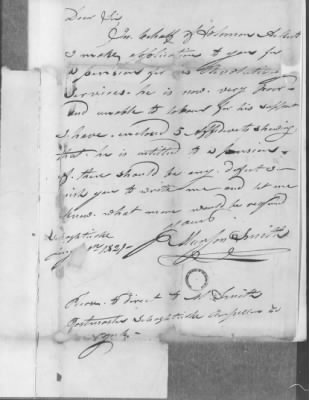 Dear Sir
In behalf of Solomon
I make application to you for
a pension for his Revolution
Services. he is now very poor
and unable to labour for his support
I have enclosed 5 affidavits shewing
that he is intitled to a pension
if there should be any defect I
wish you to write me and let me
know what more would be
yours
Schaghticoke
1st 1821
Smith
to direct to Mr Smith
Postmaster Schaghticoke
york